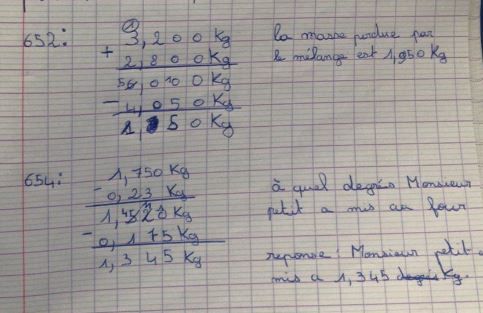 652:
3,200 Kg
+ 2,800 Kg
6,000 Kg
- 4,050 Kg
1, 50 Kg
la masse perdue par
le mélange est 1,950 Kg
654:
1,750 Kg
- 0,23 Kg
1,520 Kg
- 0,175 Kg
1,345 Kg
à quel degrés Monsieur
petit a mis au four
reponse: Monsieur petit a
mis a 1,345 degrés Kg.